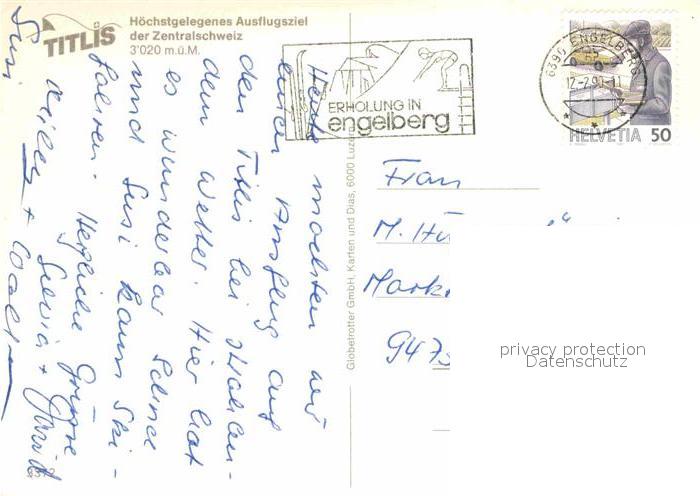 TITLIS
Höchstgelegenes Ausflugsziel
der Zentralschweiz
3'020 m.ü.M.
ERHOLUNG IN
engelberg
6390 ENGELBERG
12-2.90-11
HELVETIA 50
Heute machten wir
einen Ausflug auf
den Titlis bei strahlen-
dem Wetter. Hier hat
es wunderbar Schnee
und Susi kann Ski-
fahren. Herzliche Grüsse
Silvia +
Willy +
Susi
Globetrotter GmbH, Karten und Dias, 6000 Luzern
Frau
M. Hu
Mark
947
privacy protection
Datenschutz